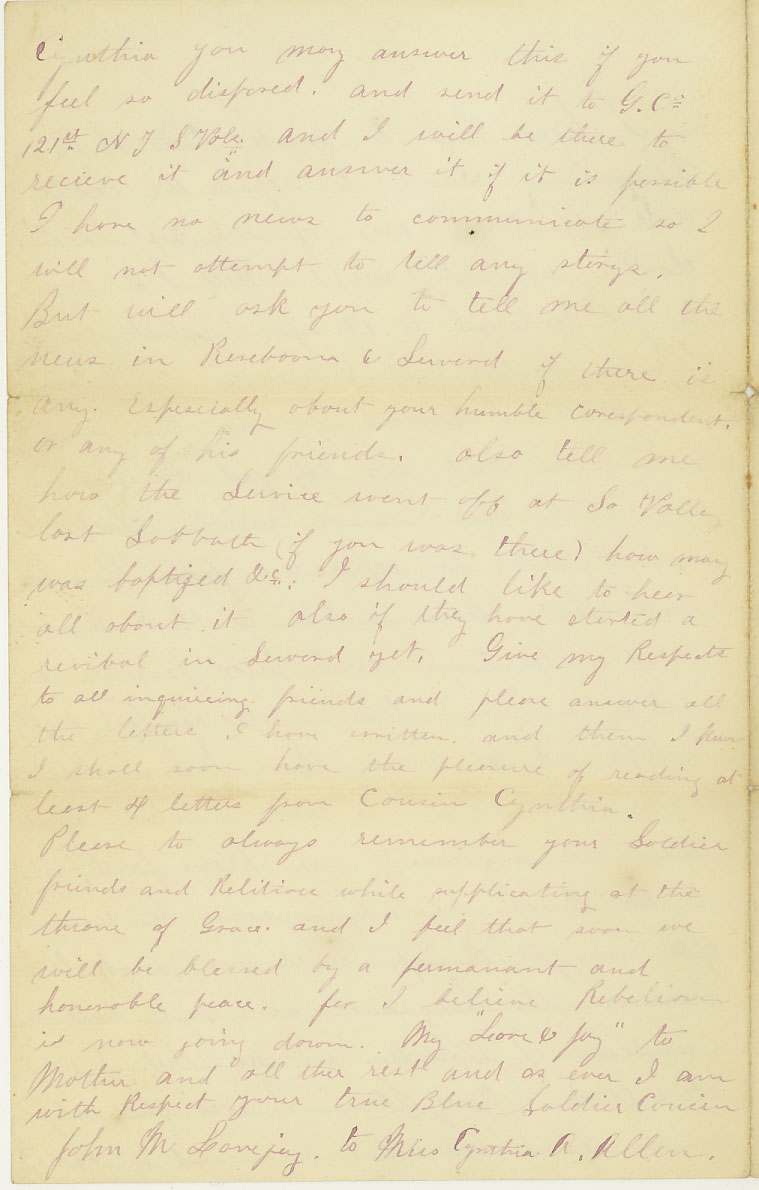 Cynthia you may answer this if you
feel so disposed. and send it to G. Co
121st N Y S Vols. and I will be there to
recieve it and answer it if it is possible
I have no news to communicate so I
will not attempt to tell any storys.
But will ask you to tell me all the
news in Roseboom & Seward if there is
any. Especially about your humble corespondent.
or any of his friends. also tell me
how the Service went off at So Valley
last Sabbath (if you was there) how many
was baptized &c. I should like to hear
all about it also if they have started a
revival in Seward yet. Give my Respects
to all inquireing friends and please answer all
the letters I have written. and then I know
I shall soon have the pleasure of reading at
least 4 letters from Cousin Cynthia.
Please to always remember your Soldier
friends and Relitives while supplicating at the
throne of Grace. and I feel that soon we
will be blessed by a permanant and
honorable peace. for I believe Rebelion
is now going down. My "Love & Joy" to
Mother and "all the rest" and as ever I am
with Respect your true Blue Soldier Cousin
John M Lovejoy. to Miss Cynthia A. Allen.